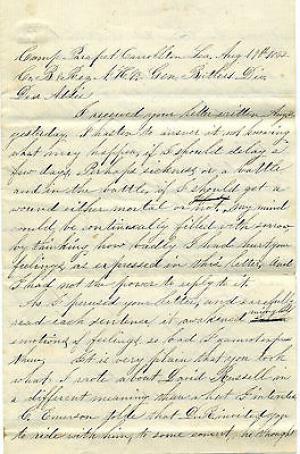 Camp Parapet Carrollton La, Aug 19th 1862
Co. B. 8 Reg N. H. V. Gen. Butlers Div
Dear Addie
I received your letter written Aug 3
yesterday. I hasten to answer it not knowing
what may happen, if I should delay a
few days, Perhaps sickness, or a battle
and in the battle if I should get a
wound either mortal or not, my mind
would be continually filled with sorrow
by thinking how badly I had hurt your
feelings as expressed in this letter, and
I had not the power to reply to it.
As I perused your letter, and carefully
read each sentence it awakened
emotions & feelings, so bad I cannot express
them. It is very plain that you took
what I wrote about David Russell in
a different meaning than what I intended
C. Emerson told that D. R. invited you
to ride with him to some concert, he thought